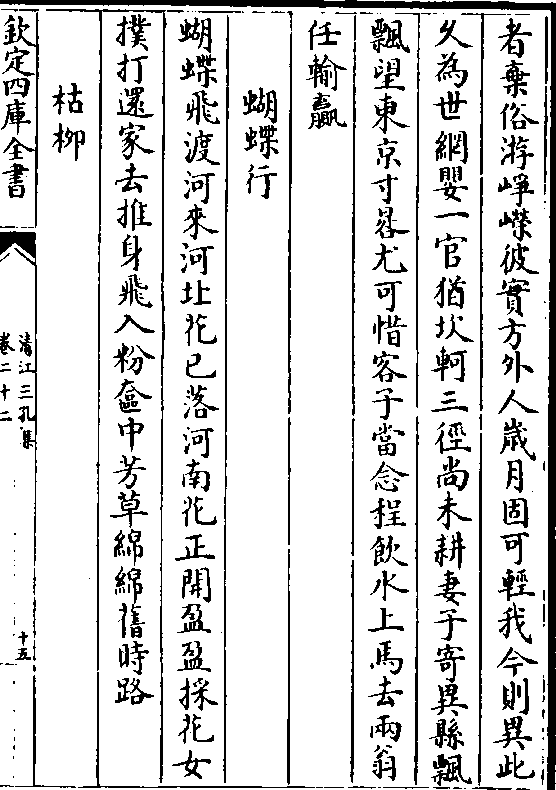 者棄俗游崢嶸彼實方外人歲月固可輕我今則異此
久為世網嬰一官猶坎軻三徑尚未耕妻子寄異縣飄
飄望東京寸晷尤可惜客子當念程飲水上馬去兩翁
任輸贏
蝴蝶行
蝴蝶飛渡河來河北花已落河南花正開盈盈採花女
撲打還家去推身飛入粉奩中芳草綿綿舊時路
枯柳
欽定四庫全書
清江三孔集
卷二十二
十五